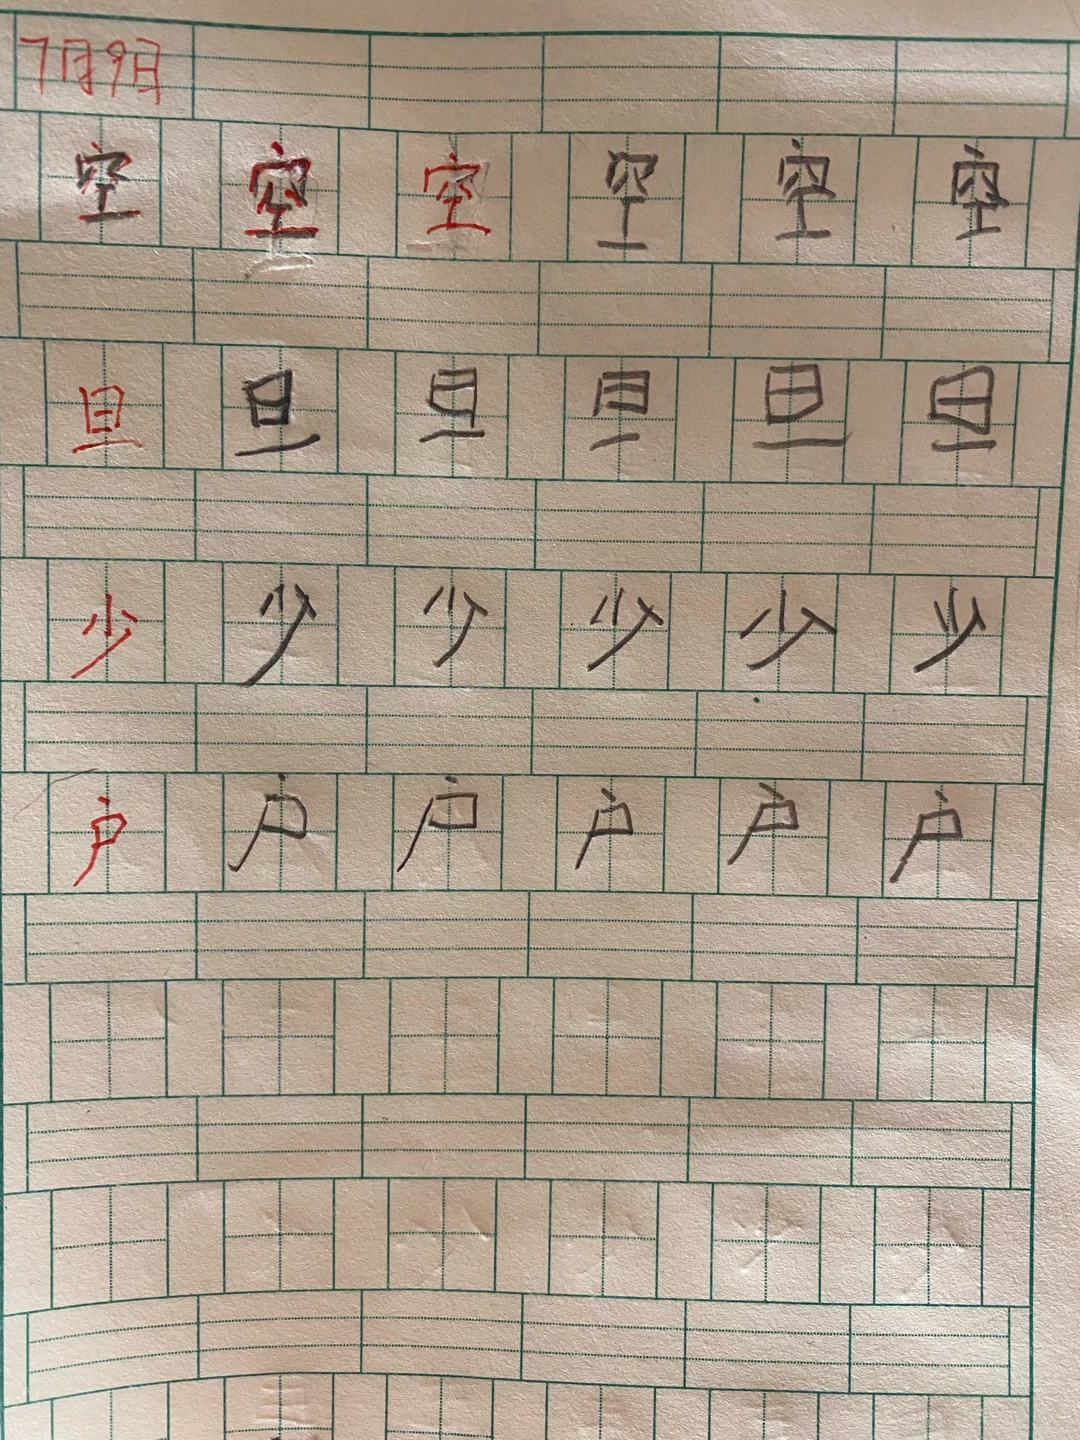 7月9日
空 空 空 空 空 空
旦 旦 旦 旦 旦 旦
少 少 少 少 少 少
户 户 户 户 户 户